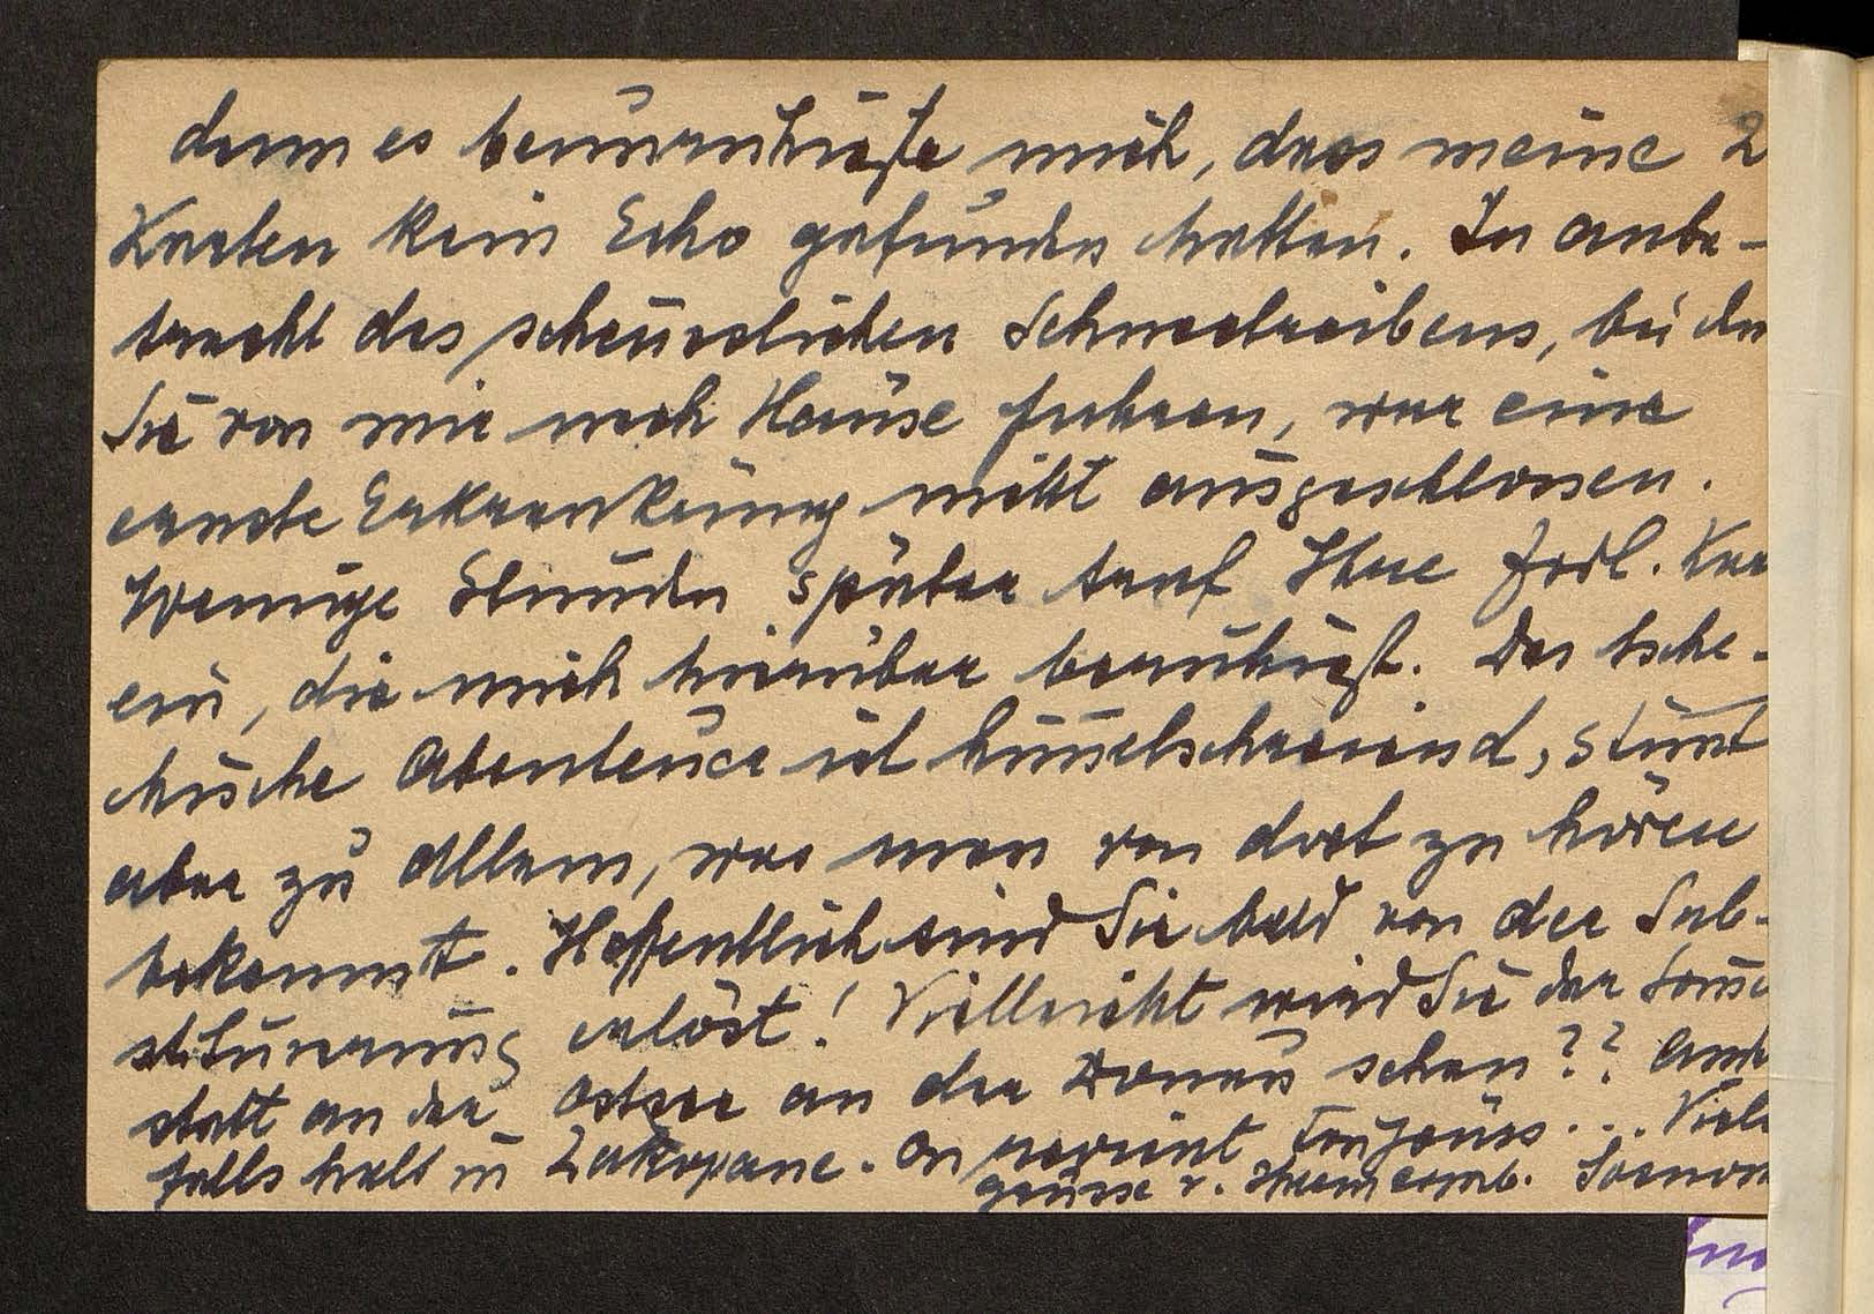 denn es beunruhigte mich, dass meine 2
Karten kein Echo gefunden hatten. In anbe-
tracht des scheusslichen Schneetreibens, bei dem
Sie von mir nach Hause fuhren, war eine
ernste Erkrankung nicht ausgeschlossen.
Wenige Stunden später traf Ihre frdl. Kar
ein, die mich hierüber beruhigt. Das tsche-
chische Abenteuer ist himmelschreiend, stimt
aber zu Allem, was man von dort zu hören
bekommt. Hoffentlich sind Sie bald von der Sub-
stituierung erlöst! Vielleicht wird Sie der Somm
statt an der Ostsee an der Donau sehen?? Andr
falls halt in Zakopane. On revient toujours... Viele
grüsse v. Ihrem ergeb.